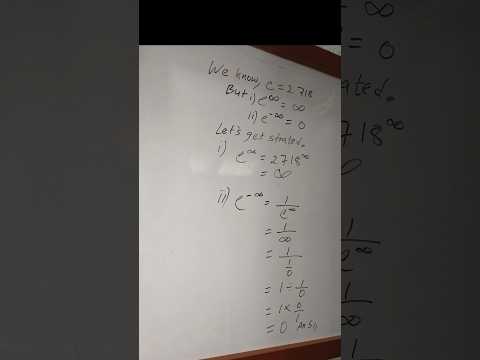 We know, e = 2.718
But i) e^∞ = ∞
ii) e^-∞ = 0
Let's get strated.
i) e^∞ = 2718^∞
= ∞
ii) e^-∞ = 1/e^∞
= 1/∞
= 1/(1/0)
= 1 ÷ 1/0
= 1 × 0/1
= 0 Ans